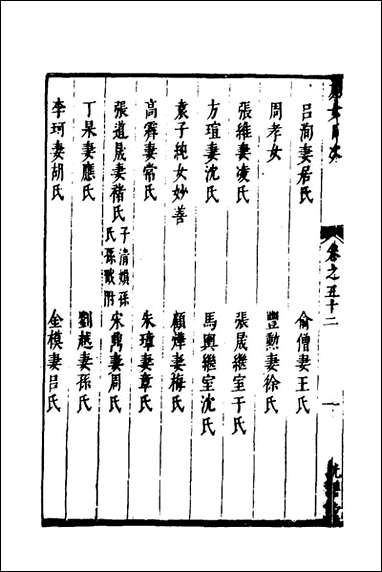 列女目次
卷之五十二
一
呂洵妻居氏　俞僧妻王氏
周孝女　豐勳妻徐氏
張維妻凌氏　張晟繼室于氏
方瑄妻沈氏　馬輿繼室沈氏
袁子純女妙善　顧燁妻梅氏
高霽妻常氏　朱瑋妻章氏
張道晟妻褚氏子清媍孫氏孫畋附　宋爵妻周氏
丁杲妻應氏　劉越妻孫氏
李珂妻胡氏　金模妻呂氏